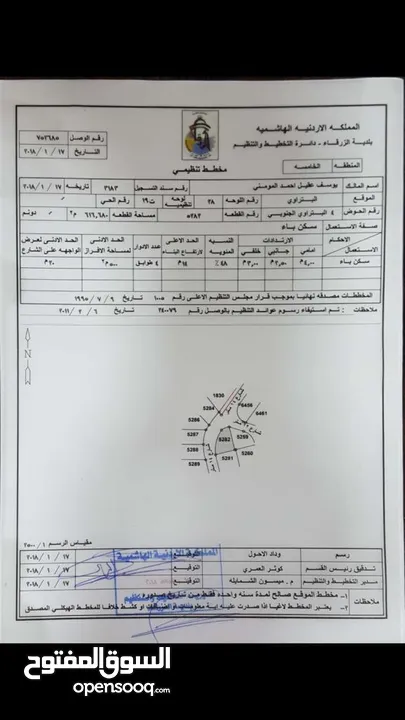 المملكه الاردنيه الهاشميه
بلدية الزرقاء - دائرة التخطيط والتنظيم
المنطقه الخامسه
مخطط تنظيمي
رقم الوصل ٧٥٢٦٨٥
التاريخ ١٧ / ١ / ٢٠١٨
اسم المالك يوسف عقيل احمد المومني رقم سند التسجيل ٣٦٨٣ تاريخه ١٧ / ١ / ٢٠١٨
الموقع البتراوي رقم اللوحه ٢٨ لوحة تنظيمية ت١٩ رقم الحي /
رقم الحوض ٤ البتراوي الجنوبي رقم القطعه ٥٢٨٢ مساحة القطعه ٦١٦,٦٨٠ م٢ / دونم
صفة الاستعمال سكن باء
الاحكام الارتدادات النسبه المئويه الحد الاعلى لارتفاع البناء عدد الادوار الحد الادنى لمساحة الافراز الحد الادنى لعرض الواجهه على الشارع
الاستعمال امامي جانبي خلفي
سكن باء ٤,٠٠م ٢,٥٠م ٣,٠٠م ٤٨٪ ١٤م ٤ طوابق ٥٠٠م٢ ٢٠م
المخططات مصدقه نهائيا بموجب قرار مجلس التنظيم الاعلى رقم ١٠٠٥ تاريخ ٩ / ٧ / ١٩٩٥
ملاحظات : تم استيفاء رسوم عوائد التنظيم بالوصل رقم ٢٤٠٠٧٩ تاريخ ٦ / ٢ / ٢٠١١
1830
5284
6456
6461
5286
5287
5282
5259
5288
5281
5260
5289
مقياس الرسم ١ / ٢٥٠٠
رسم وداد الاحول التوقيع ١٧ / ١ / ٢٠١٨
تدقيق رئيس القسم كوثر العمري التوقيع ١٧ / ١ / ٢٠١٨
مدير التخطيط والتنظيم م . ميسون الشمايله التوقيع ١٧ / ١ / ٢٠١٨
المملكة الأردنية الهاشمية
ملاحظات
١- مخطط الموقع صالح لمدة سنه واحده فقط من تاريخ صدوره
٢- يعتبر المخطط لاغيا اذا صدرت عليه اية معلومات او اضافات او كشط خلافا للمخطط الهيكلي المصدق
السوق المفتوح
opensooq.com